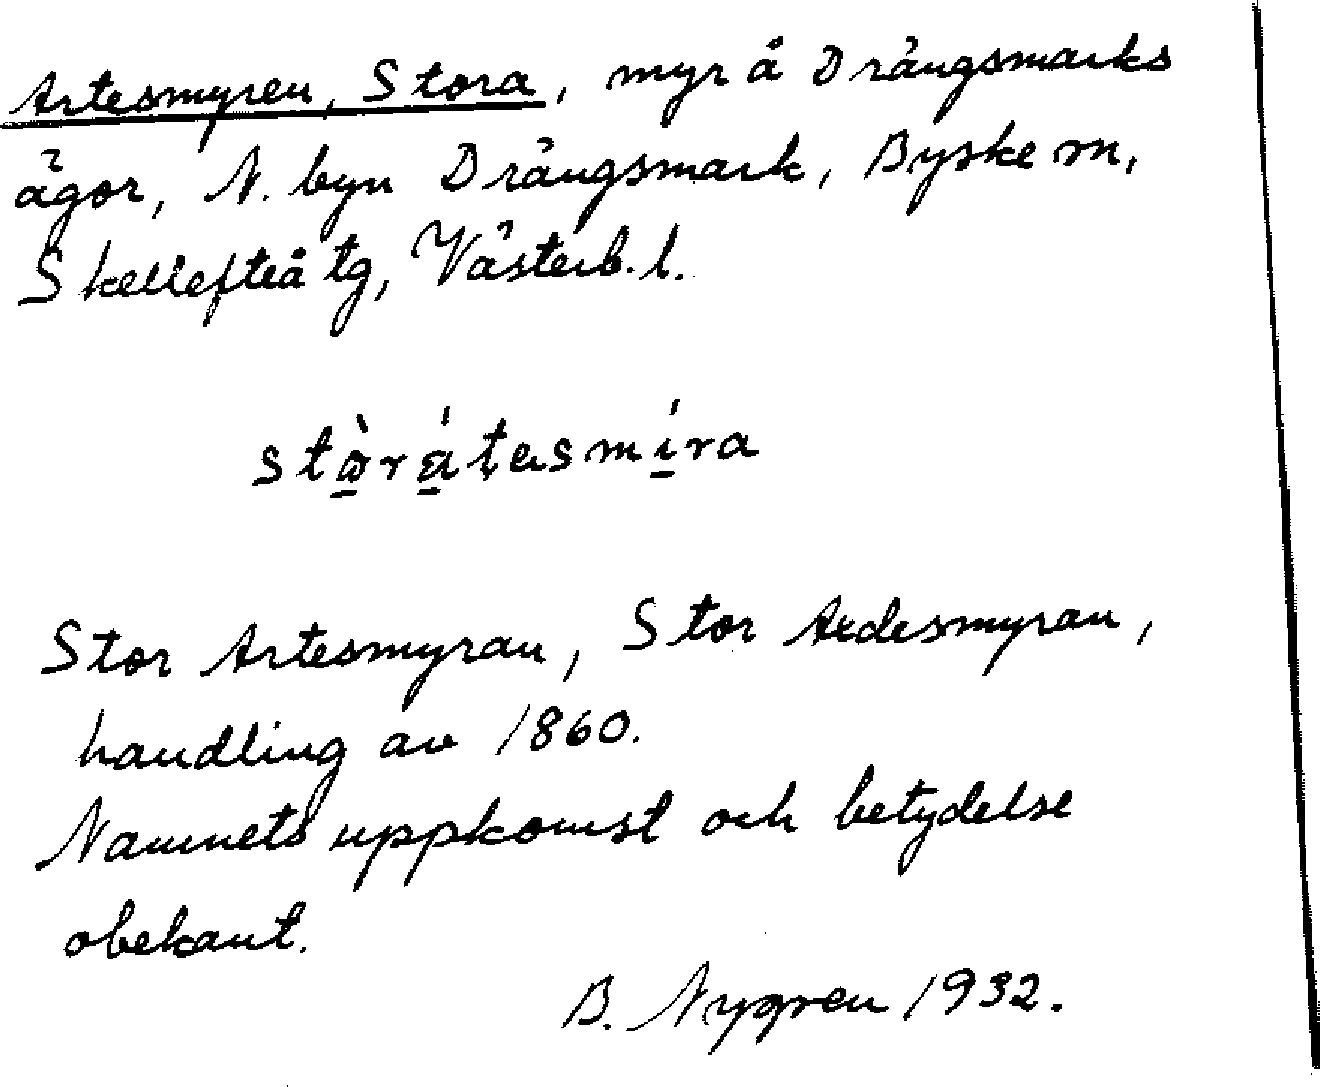 Artesmyren, Stora, myr å Drängsmarks
ägor, N. byn Drängsmark, Byske sn,
Skellefteå tg, Västerb. l.
stò̱rá̱tesmí̱ra
Stor Artesmyran, Stor Ardesmyran,
handling av 1860.
Namnets uppkomst och betydelse
obekant.
B. Nygren 1932.